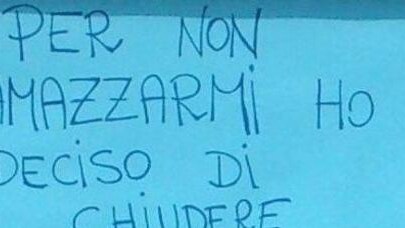 PER NON
AMAZZARMI HO
DECISO DI
CHIUDERE